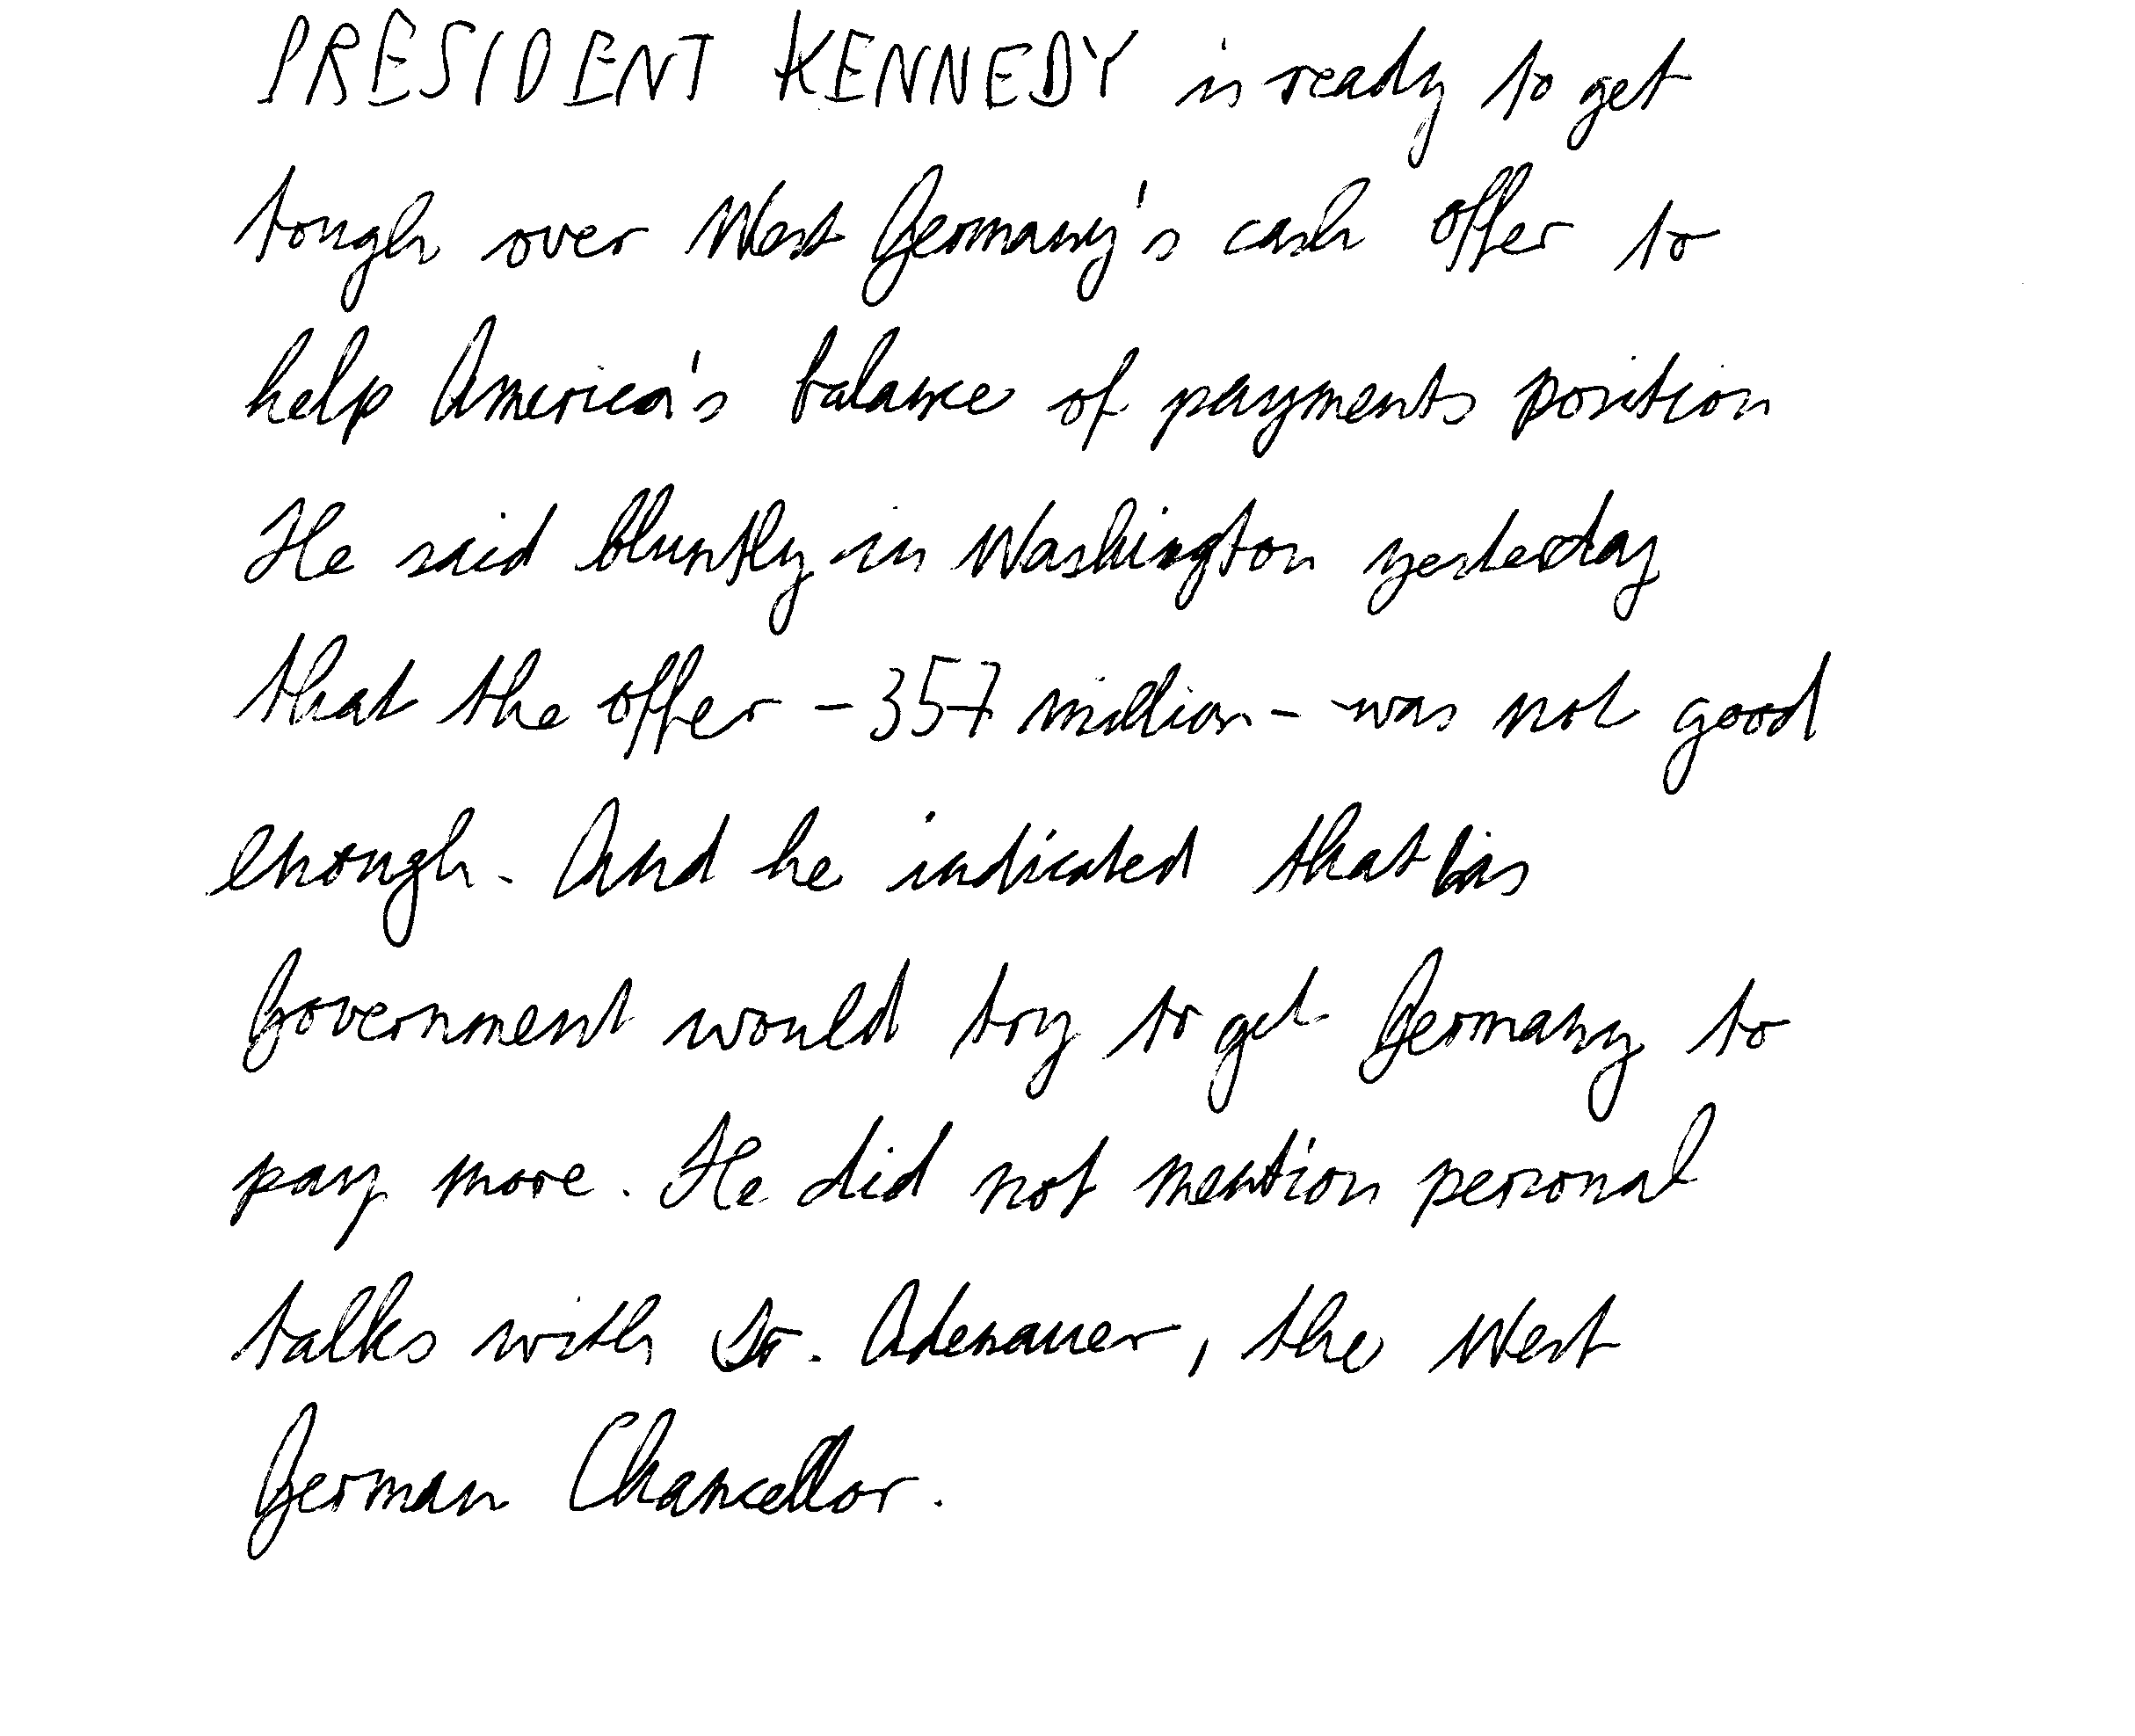 PRESIDENT KENNEDY is ready to get
tough over West Germany's cash offer to
help America's balance of payments position
He said bluntly in Washington yesterday
that the offer - 357 million - was not good
enough. And he indicated that his
Government would try to get Germany to
pay more. He did not mention personal
talks with Dr. Adenauer, the West
German Chancellor.